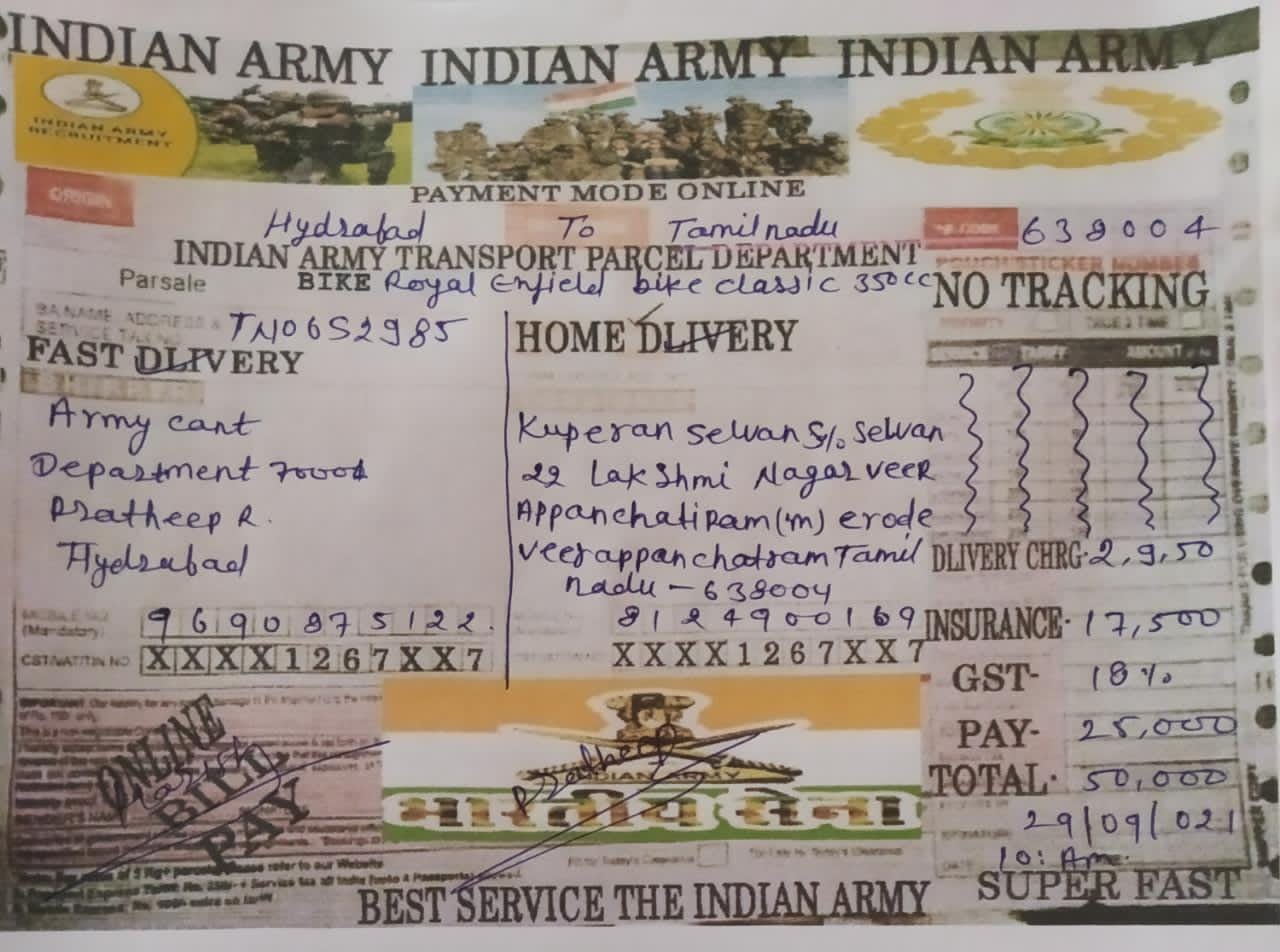 INDIAN ARMY INDIAN ARMY INDIAN ARMY
INDIAN ARMY
RECRUITMENT
PAYMENT MODE ONLINE
ORIGIN
Hydrabad To Tamilnadu
638004
INDIAN ARMY TRANSPORT PARCEL DEPARTMENT
POUCH STICKER NUMBER
Parsale BIKE Royal Enfield bike classic 350cc
NO TRACKING
TN06S2985
FAST DLIVERY
HOME DLIVERY
AMOUNT
Army cant
Department 70001
Pratheep R.
Hydrabad
Kuperan Selvan S/o Selvan
22 Lakshmi Nagar veer
Appanchatiram(m) erode
Veerappanchatram Tamil
nadu - 638004
DLIVERY CHRG- 2,9,50
(Mandatory)
9690875122.
8124900169
INSURANCE- 17,500
CST/VAT/TIN NO XXXX1267XX7
XXXX1267XX7
GST- 18%
PAY- 25,000
TOTAL- 50,000
29/09/021
10: Am.
ONLINE
BILL
PAY
Pratheep
INDIAN ARMY
भारतीय सेना
SUPER FAST
BEST SERVICE THE INDIAN ARMY